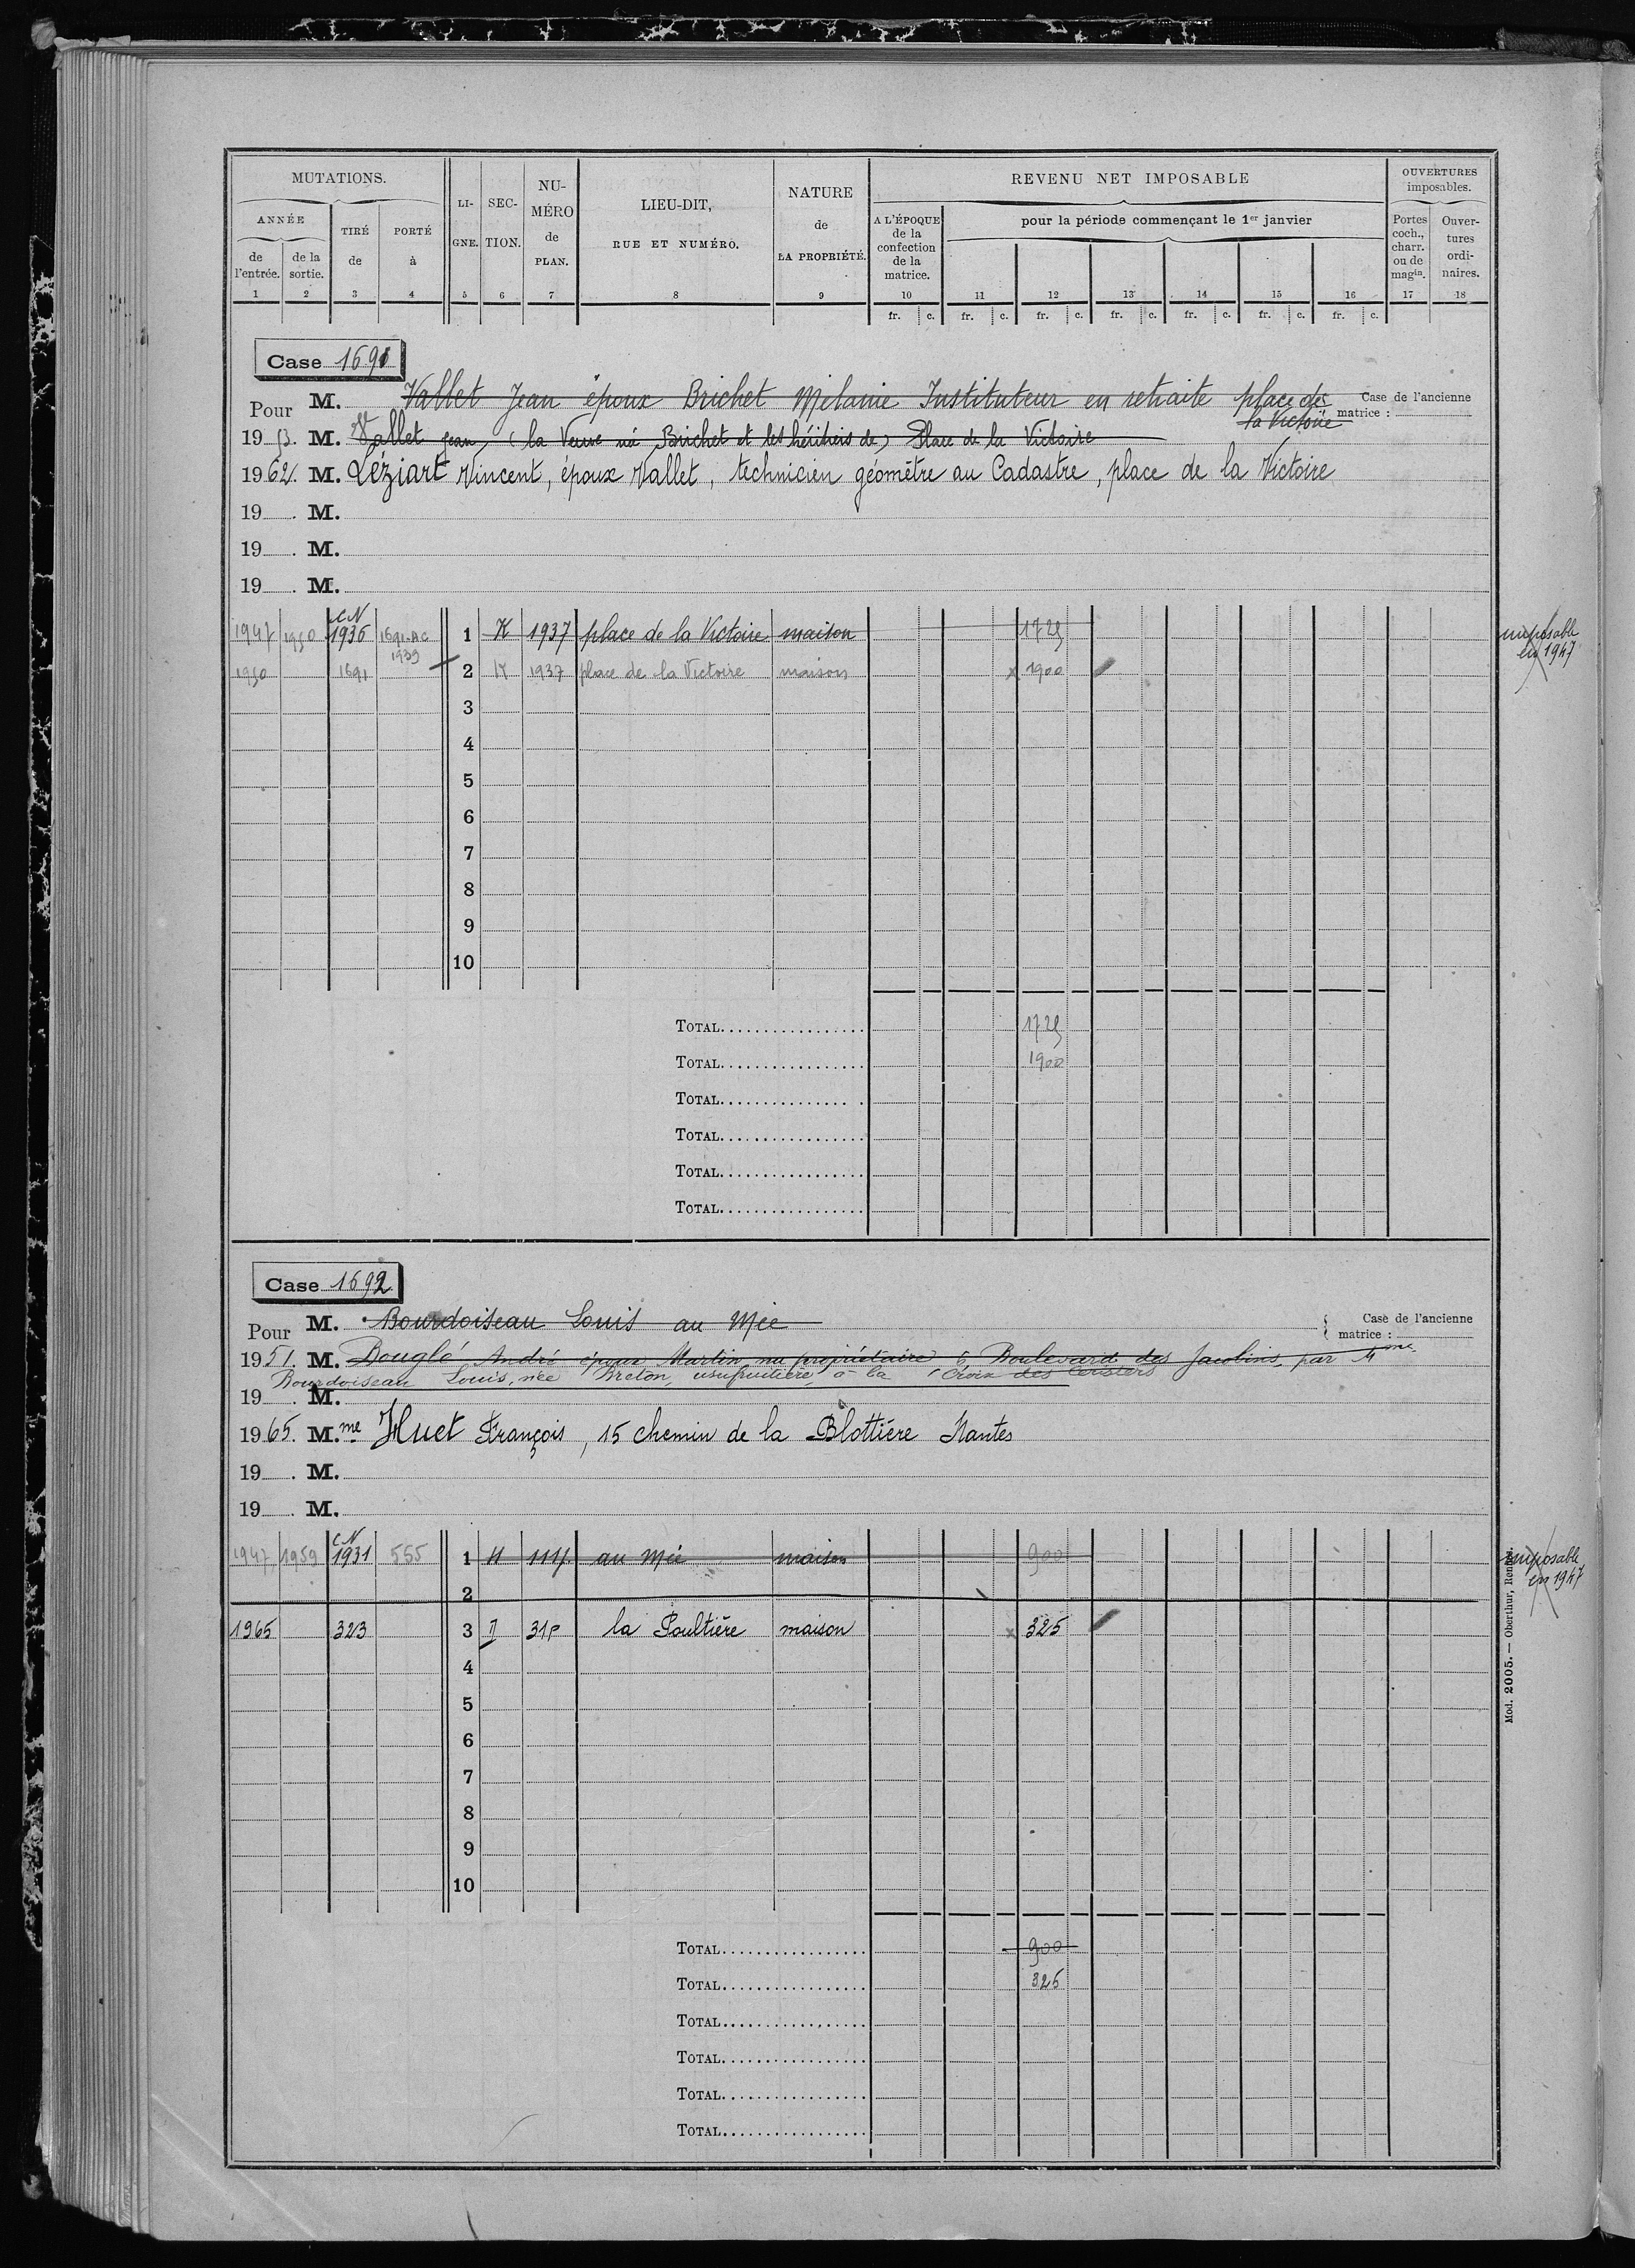 MUTATIONS.
ANNÉE
de l'entrée.
de la sortie.
TIRÉ de
PORTÉ à
LIGNE.
SECTION.
NUMÉRO de PLAN.
LIEU-DIT, RUE ET NUMÉRO.
NATURE de LA PROPRIÉTÉ.
REVENU NET IMPOSABLE
A L'ÉPOQUE de la confection de la matrice.
pour la période commençant le 1er janvier
OUVERTURES imposables.
Portes coch., charr. ou de magin.
Ouvertures ordinaires.
1 2 3 4 5 6 7 8 9 10 11 12 13 14 15 16 17 18
fr. c. fr. c. fr. c. fr. c. fr. c. fr. c. fr. c.
Case 1691
Pour M. Vallet Jean époux Brichet Mélanie Instituteur en retraite place de la Victoire
Case de l'ancienne matrice :
1953. M. Vallet Jean, (la Veuve né Brichet et les héritiers de) Place de la Victoire
1962. M. Léziart Vincent, époux Vallet, technicien géomètre au Cadastre, place de la Victoire
19 . M.
19 . M.
19 . M.
1947 1950 CN 1936 1691 AC 1939 1 K 1937 place de la Victoire maison 1725 imposable en 1947
1950 1691 2 K 1937 place de la Victoire maison x 1900
3
4
5
6
7
8
9
10
TOTAL 1725
TOTAL 1900
TOTAL
TOTAL
TOTAL
TOTAL
Case 1692
Pour M. Bourdoiseau Louis au Mée
Case de l'ancienne matrice :
1951. M. Bouglé André époux Martin nu propriétaire 6, Boulevard des Jacobins, par Mme
Bourdoiseau Louis, née Breton, usufruitière, à la Croix des Cerisiers
19 . M.
1965. M.me Huet François, 15 chemin de la Blottière Nantes
19 . M.
19 . M.
1947 1959 CN 1931 555 1 H au Mée maison 900 imposable en 1947
2
1965 323 3 J 31p la Poultière maison x 325
4
5
6
7
8
9
10
TOTAL 900
TOTAL 325
TOTAL
TOTAL
TOTAL
TOTAL
Mod. 2005. — Oberthur, Rennes.